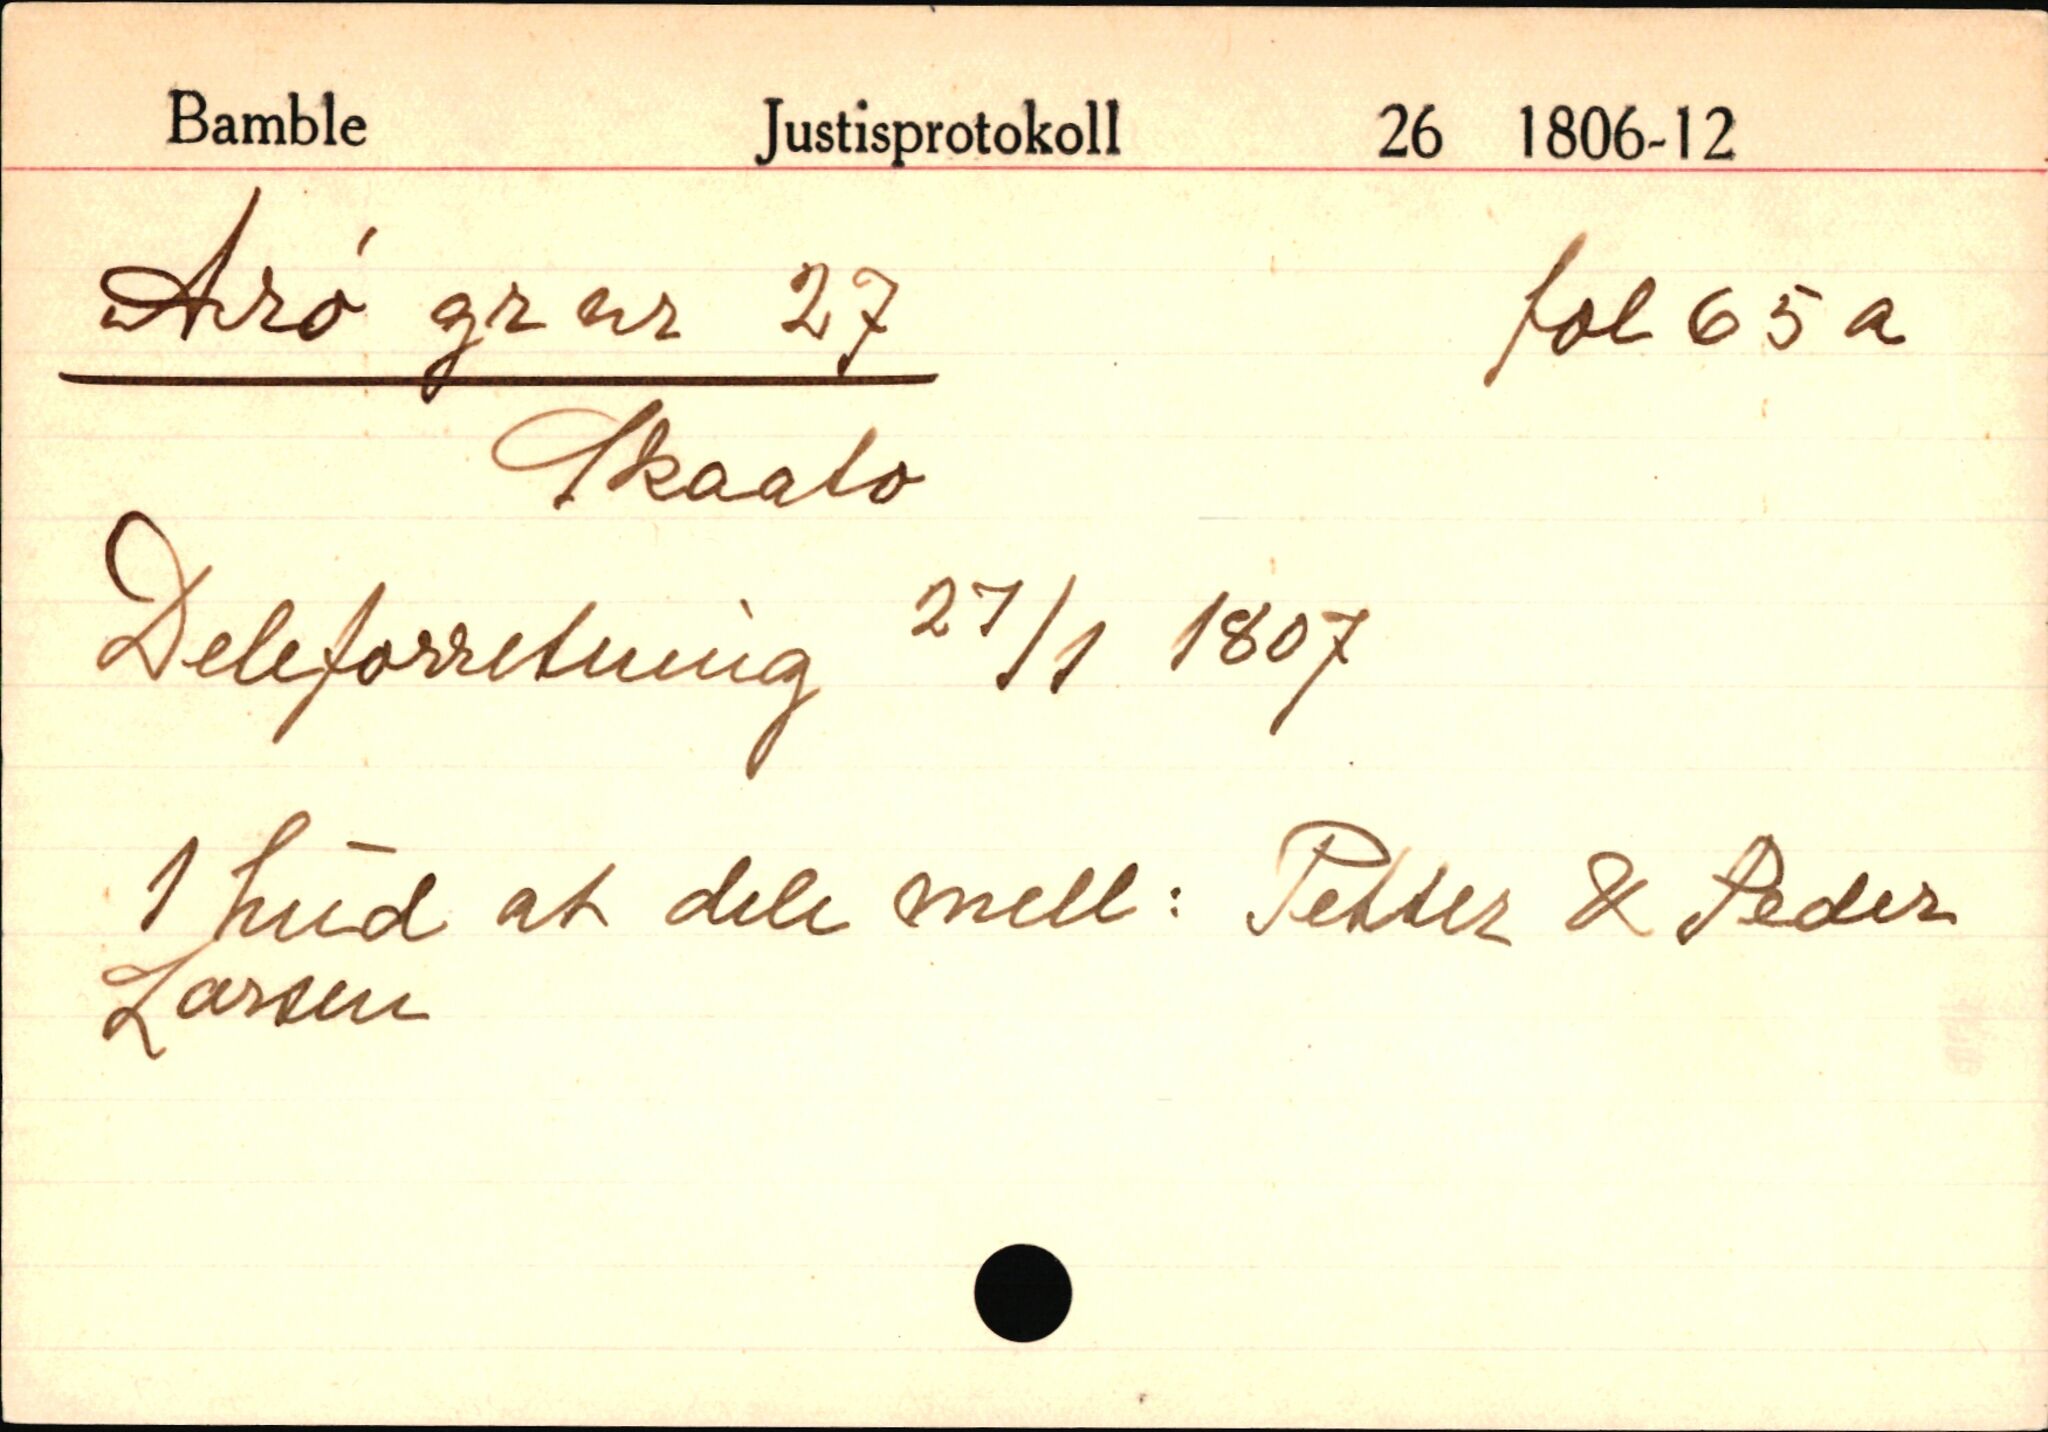 Bamble Justisprotokoll 26 1806-12
Arö gr nr 27 fol 65 a
Skaato
Deleforretning 27/1 1807
1 hud at dele mell: Petter & Peder
Larsen